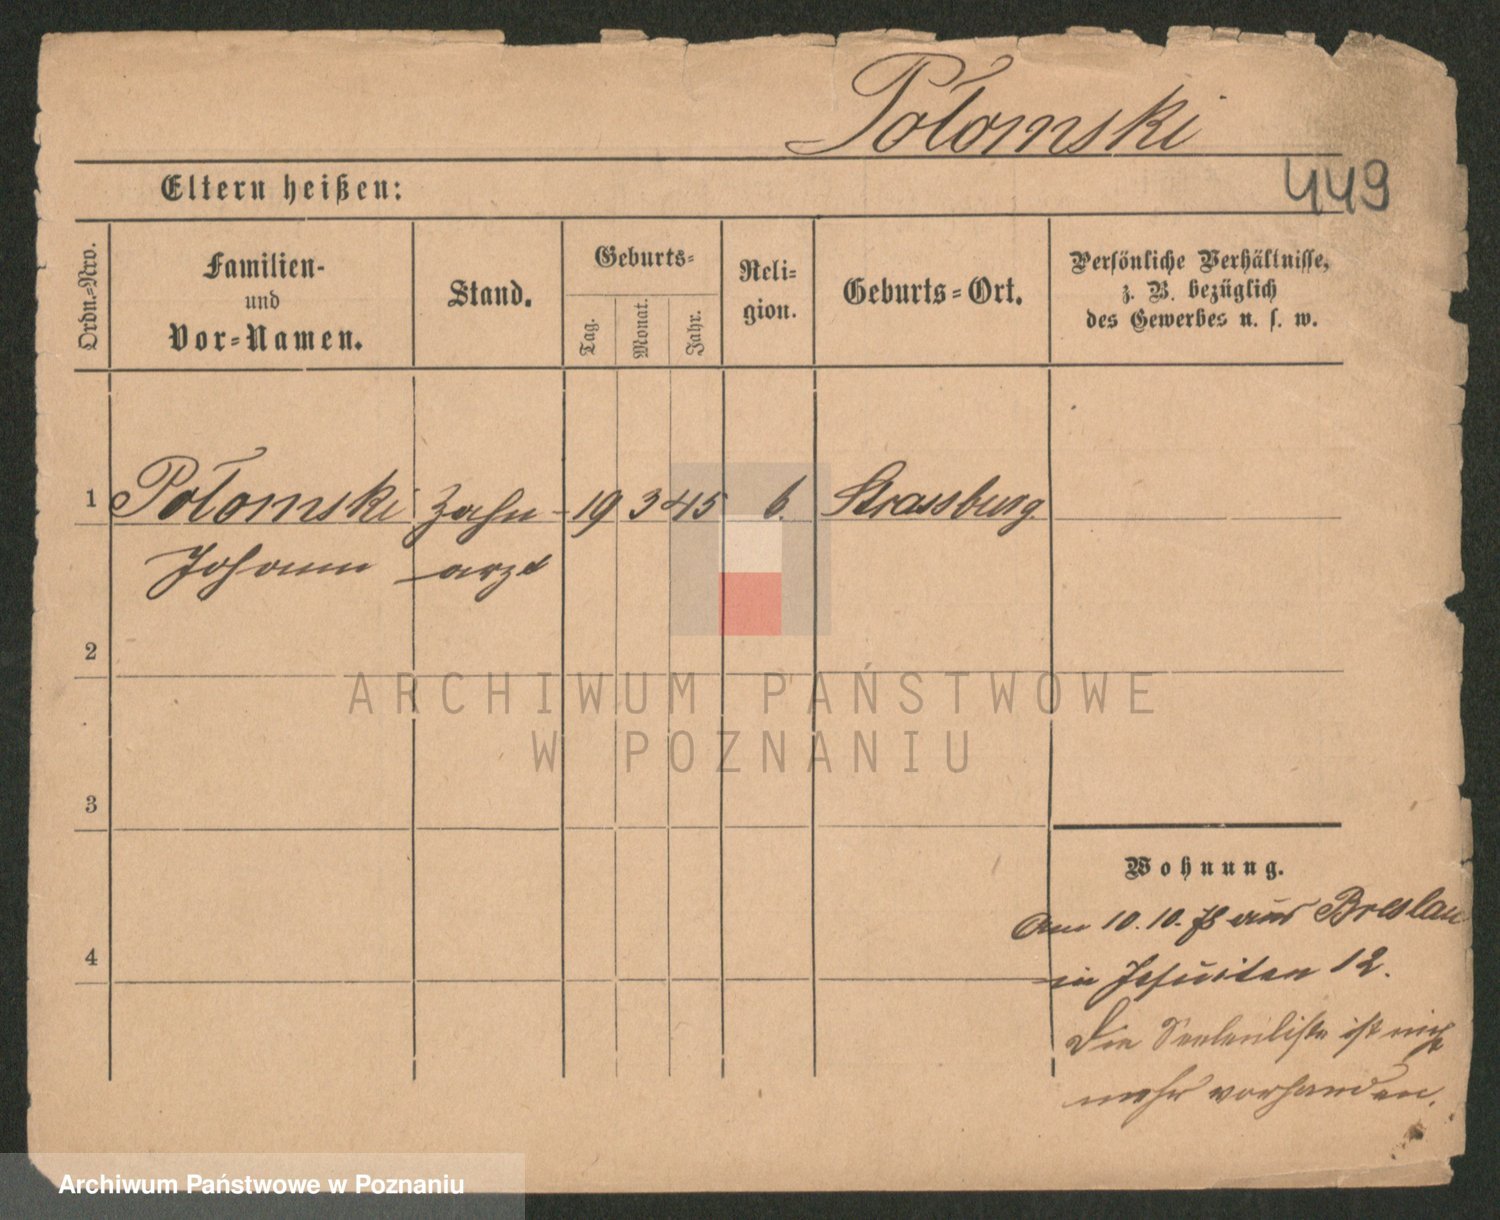 Połomski
449
Eltern heißen:
Ordn.-Nro.
Familien-
und
Vor-Namen.
Stand.
Geburts-
Tag.
Monat.
Jahr.
Reli-
gion.
Geburts-Ort.
Persönliche Verhältnisse,
z. B. bezüglich
des Gewerbes u. s. w.
1 Połomski Zahn- 19 3 45 k. Strassburg
Johann arzt
2
3
4
Wohnung.
Am 10. 10. 78 aus Breslau
in Jesuiten 12.
Die Seelenliste ist nicht
mehr vorhanden.
ARCHIWUM PAŃSTWOWE
W POZNANIU
Archiwum Państwowe w Poznaniu